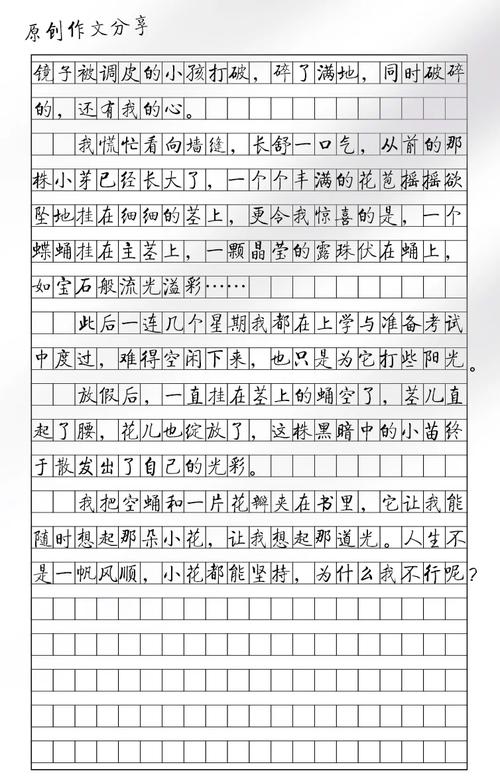 原创作文分享
镜子被调皮的小孩打破，碎了满地，同时破碎
的，还有我的心。
我慌忙看向墙缝，长舒一口气，从前的那
株小芽已经长大了，一个个丰满的花苞摇摇欲
坠地挂在细细的茎上，更令我惊喜的是，一个
蝶蛹挂在主茎上，一颗晶莹的露珠伏在蛹上，
如宝石般流光溢彩……
此后一连几个星期我都在上学与准备考试
中度过，难得空闲下来，也只是为它打些阳光。
放假后，一直挂在茎上的蛹空了，茎儿直
起了腰，花儿也绽放了，这株黑暗中的小苗终
于散发出了自己的光彩。
我把空蛹和一片花瓣夹在书里，它让我能
随时想起那朵小花，让我想起那道光。人生不
是一帆风顺，小花都能坚持，为什么我不行呢？